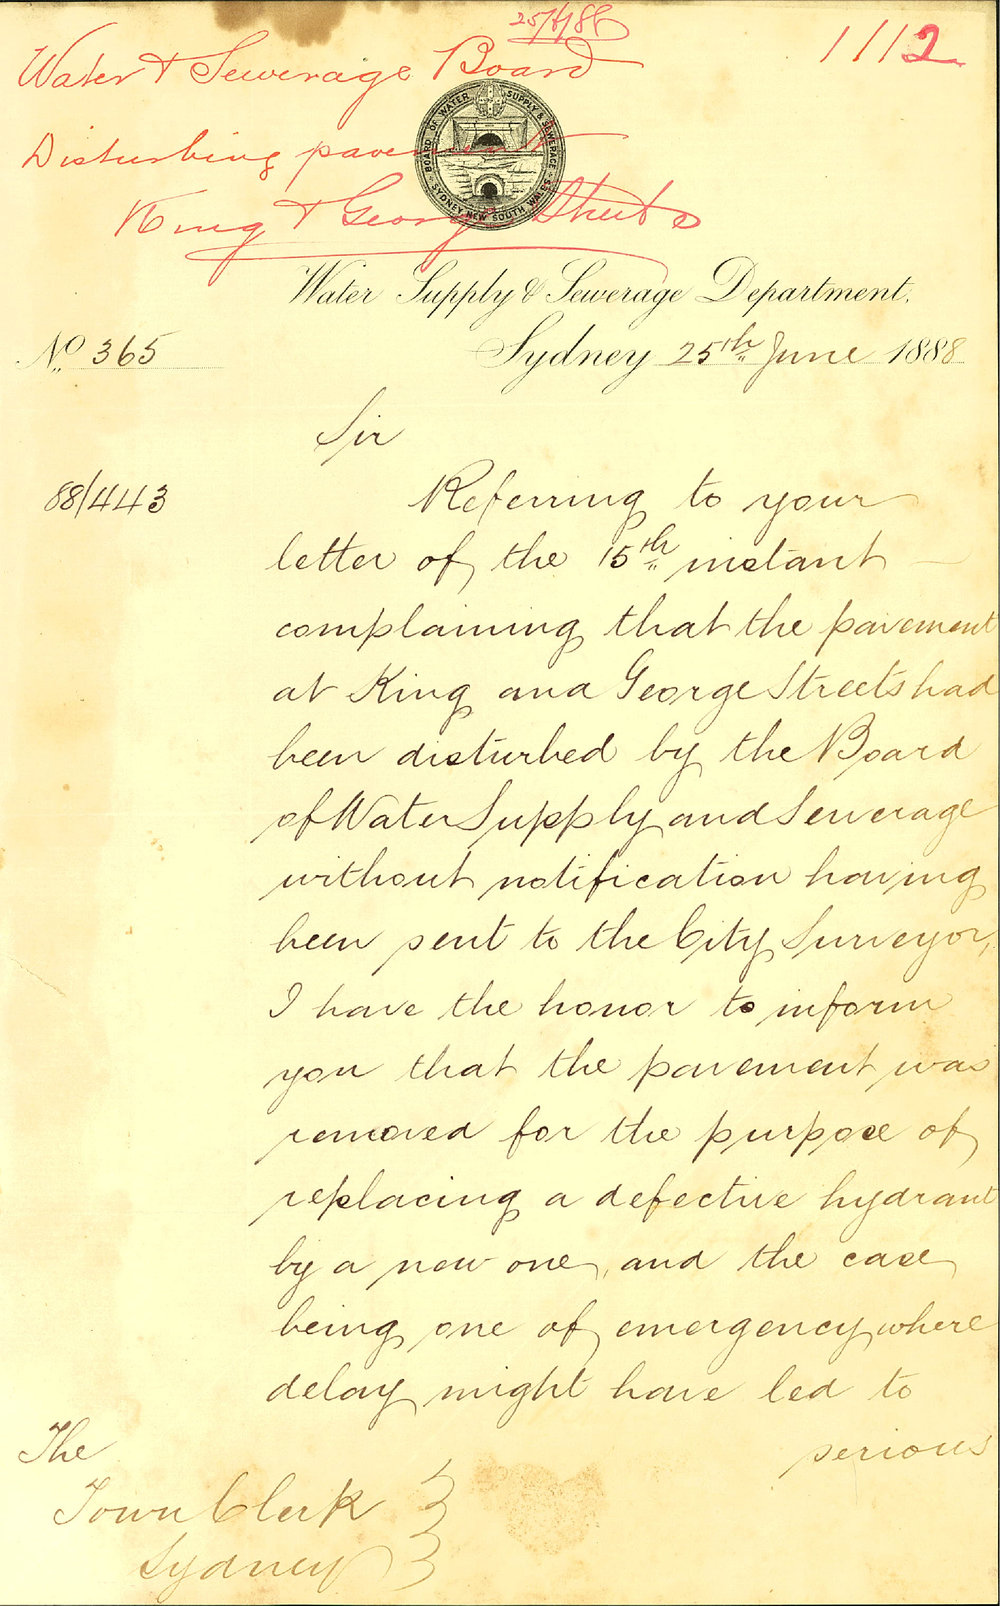 25/6/88
1112
Water & Sewerage Board
Disturbing pavement
King & George Streets
BOARD OF WATER SUPPLY & SEWERAGE
SYDNEY NEW SOUTH WALES
Water Supply & Sewerage Department.
No 365
Sydney 25th June 1888
Sir
88/443
Referring to your
letter of the 15th instant
complaining that the pavement
at King and George Streets had
been disturbed by the Board
of Water Supply and Sewerage
without notification having
been sent to the City Surveyor,
I have the honor to inform
you that the pavement was
removed for the purpose of
replacing a defective hydrant
by a new one, and the case
being one of emergency where
delay might have led to
serious
The
Town Clerk
Sydney